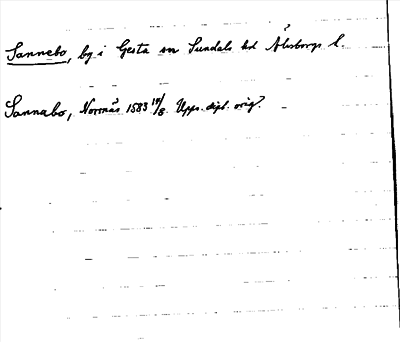 Sannebo, by i Gesta sn Sundals hd Älvsborgs l.
Sannabo, Nornäs 1583 18/8 Upps. dipl. orig.